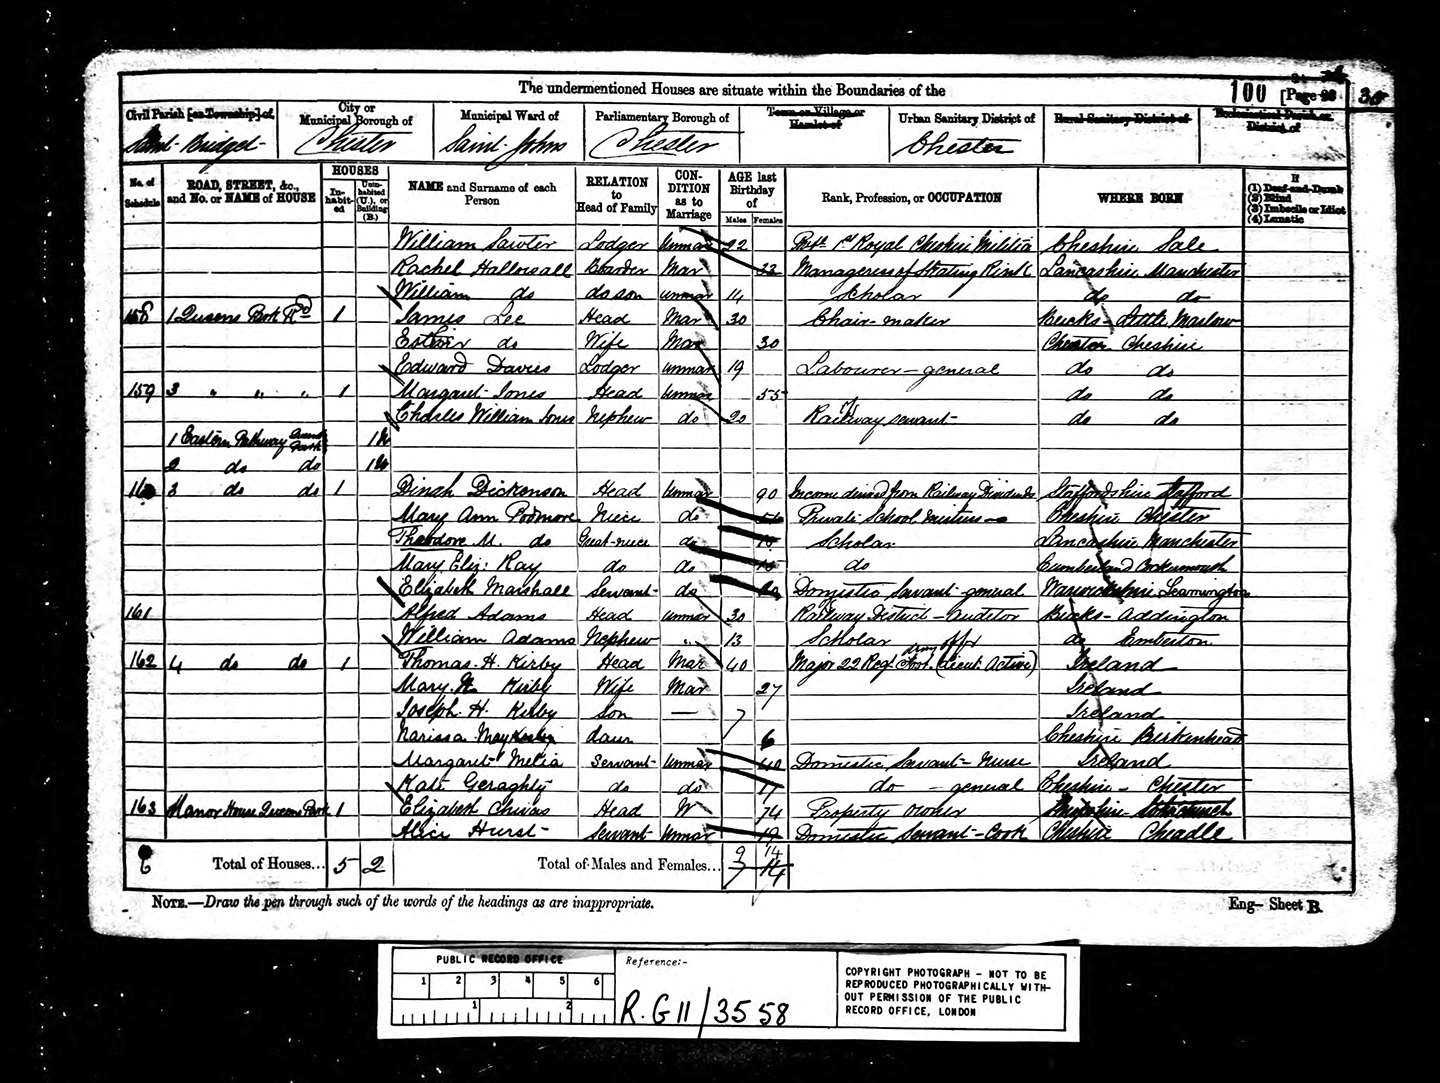 The undermentioned Houses are situate within the Boundaries of the
100 [Page 30
Civil Parish [or Township] of
City or Municipal Borough of
Municipal Ward of
Parliamentary Borough of
Town or Village or Hamlet of
Urban Sanitary District of
Rural Sanitary District of
Ecclesiastical Parish or District of
Saint Bridget Chester Saint Johns Chester Chester
No. of Schedule
ROAD, STREET, &c., and No. or NAME of HOUSE
HOUSES
In-habit-ed
Unin-habited (U.), or Building (B.)
NAME and Surname of each Person
RELATION to Head of Family
CON-DITION as to Marriage
AGE last Birthday of
Males Females
Rank, Profession, or OCCUPATION
WHERE BORN
If
(1) Deaf-and-Dumb
(2) Blind
(3) Imbecile or Idiot
(4) Lunatic
William Sawter Lodger Unmar 22 1st Royal Cheshire Militia Cheshire Sale
Rachel Hallowsall Boarder Mar 33 Manageress of Skating Rink Lancashire Manchester
William do do son Unmar 14 Scholar do do
158 1 Queens Park Rd 1 James Lee Head Mar 30 Chair-maker Bucks- Little Marlow
do Wife Mar 30 Cheshire
Edward Davies Lodger Unmar 19 Labourer-general do do
159 3 " " " 1 Margaret Jones Head Unmar 55 do do
Charles William Jones Nephew do 20 Railway servant do do
1 Eastern Pathway Queens Park 1U
2 do do 1U
160 3 do do 1 Dinah Dickenson Head Unmar 90 Income derived from Railway Dividends Staffordshire Stafford
Mary Ann Podmore Niece do Private School Mistress Cheshire Chester
Theodore M. do Great-niece do Scholar Lancashire Manchester
Mary Eliz: Ray do do do Cumberland Cockermouth
Elizabeth Marshall Servant do Domestic Servant-general Warwickshire Leamington
161 Alfred Adams Head Unmar 30 Railway District-Auditor Bucks-Addington
William Adams Nephew " 13 Scholar do Emberton
162 4 do do 1 Thomas. H. Kirby Head Mar 40 Major 22 Reg. Foot. Army Offr (Lieut Active) Ireland
Mary. Kirby Wife Mar 27 Ireland
Joseph. H. Kirby Son — 7 Ireland
Narissa May Kirby daur 6 Cheshire Birkenhead
Margaret Melia Servant Unmar 40 Domestic Servant-Nurse Ireland
Kate Geraghty do do 17 do - general Cheshire - Chester
163 Manor House Queens Park 1 Elizabeth Head W 74 Property owner
Alice Hurst Servant Unmar 19 Domestic Servant-Cook Cheshire Cheadle
6 Total of Houses... 5 2 Total of Males and Females... 9 14
7 14
NOTE.—Draw the pen through such of the words of the headings as are inappropriate.
Eng- Sheet B.
PUBLIC RECORD OFFICE
1 2 3 4 5 6
1 2
Reference:-
R.G 11/3558
COPYRIGHT PHOTOGRAPH - NOT TO BE
REPRODUCED PHOTOGRAPHICALLY WITH-
OUT PERMISSION OF THE PUBLIC
RECORD OFFICE, LONDON